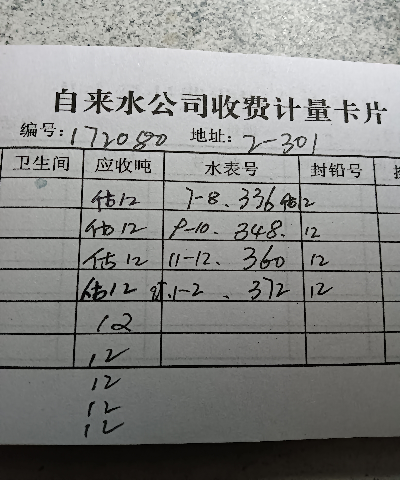 自来水公司收费计量卡片
编号:172080 地址:2-301
卫生间 应收吨 水表号 封铅号
估12 7-8.336估12
估12 9-10.348.12
估12 11-12.360 12
估12 1-2.372 12
12
12
12
12
12